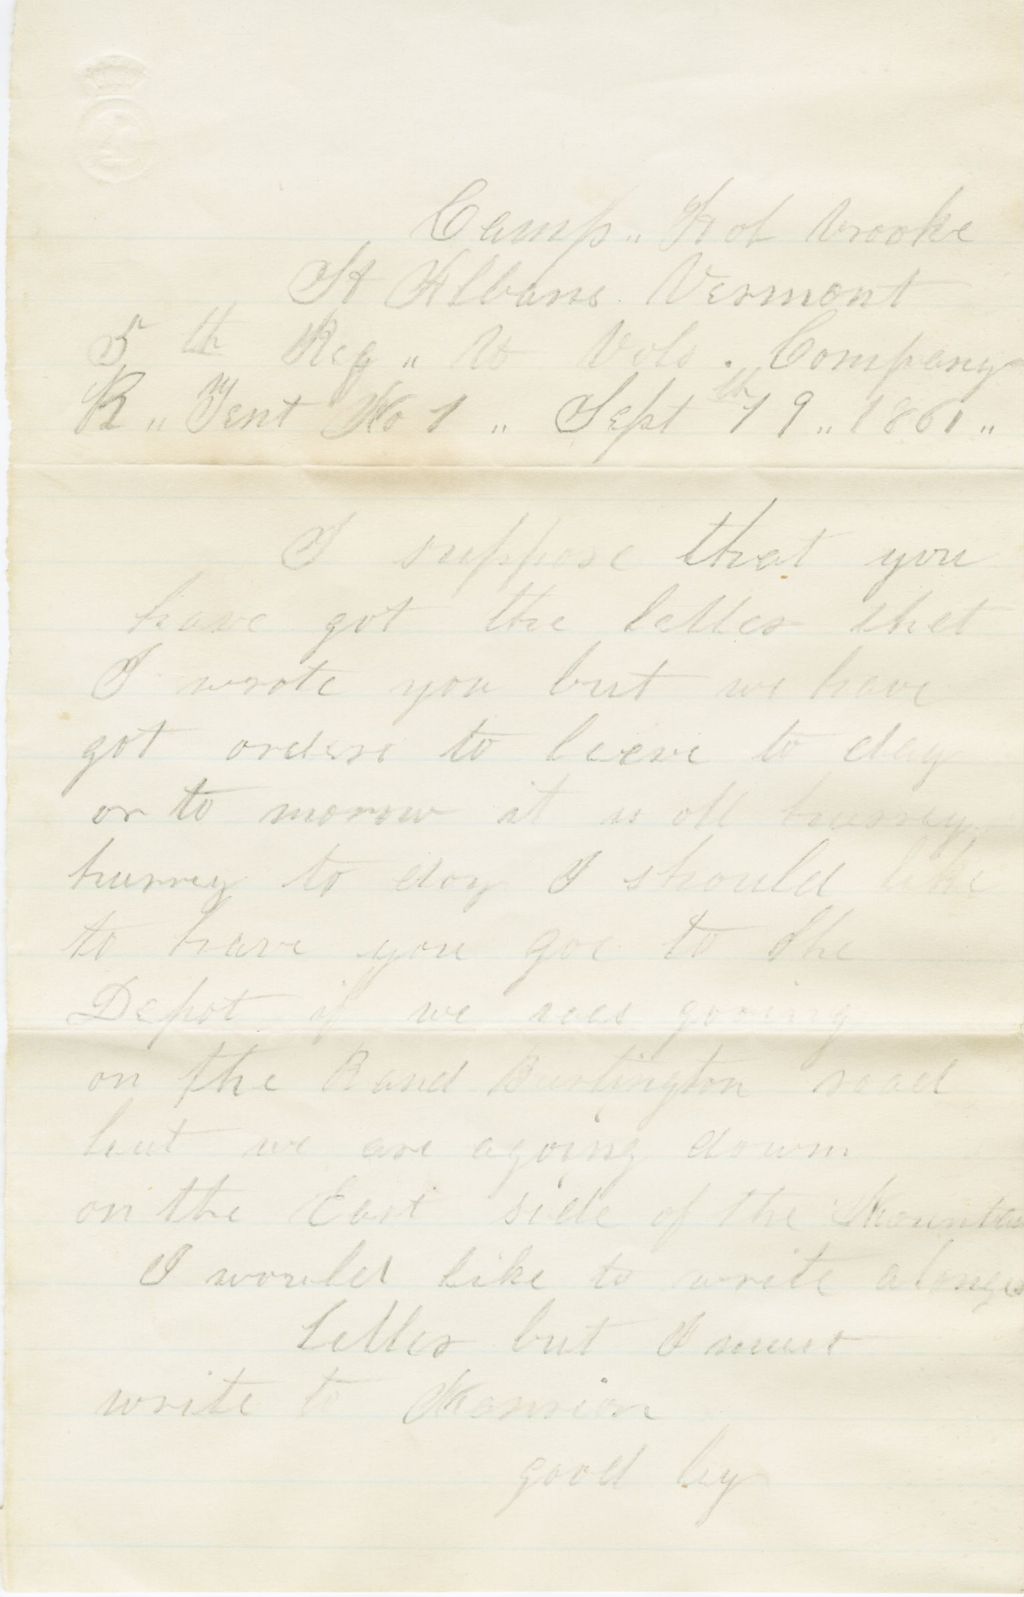 Camp „ Hol brooke
St Albans Vermont
5th Reg „ Vt Vols . Company
K „ Tent No 1 „ Sept 19th „ 1861 „
I suppose that you
have got the letter thet
I wrote you but we have
got orders to leeve to day
or to morow it is all hurrey
hurrey to day I should like
to have you goe to the
Depot if we was gooing
on the Rand Burlington road
but we are agoing down
on the East side of the Mountain
I would like to write alonger
letter but I must
write to
good by